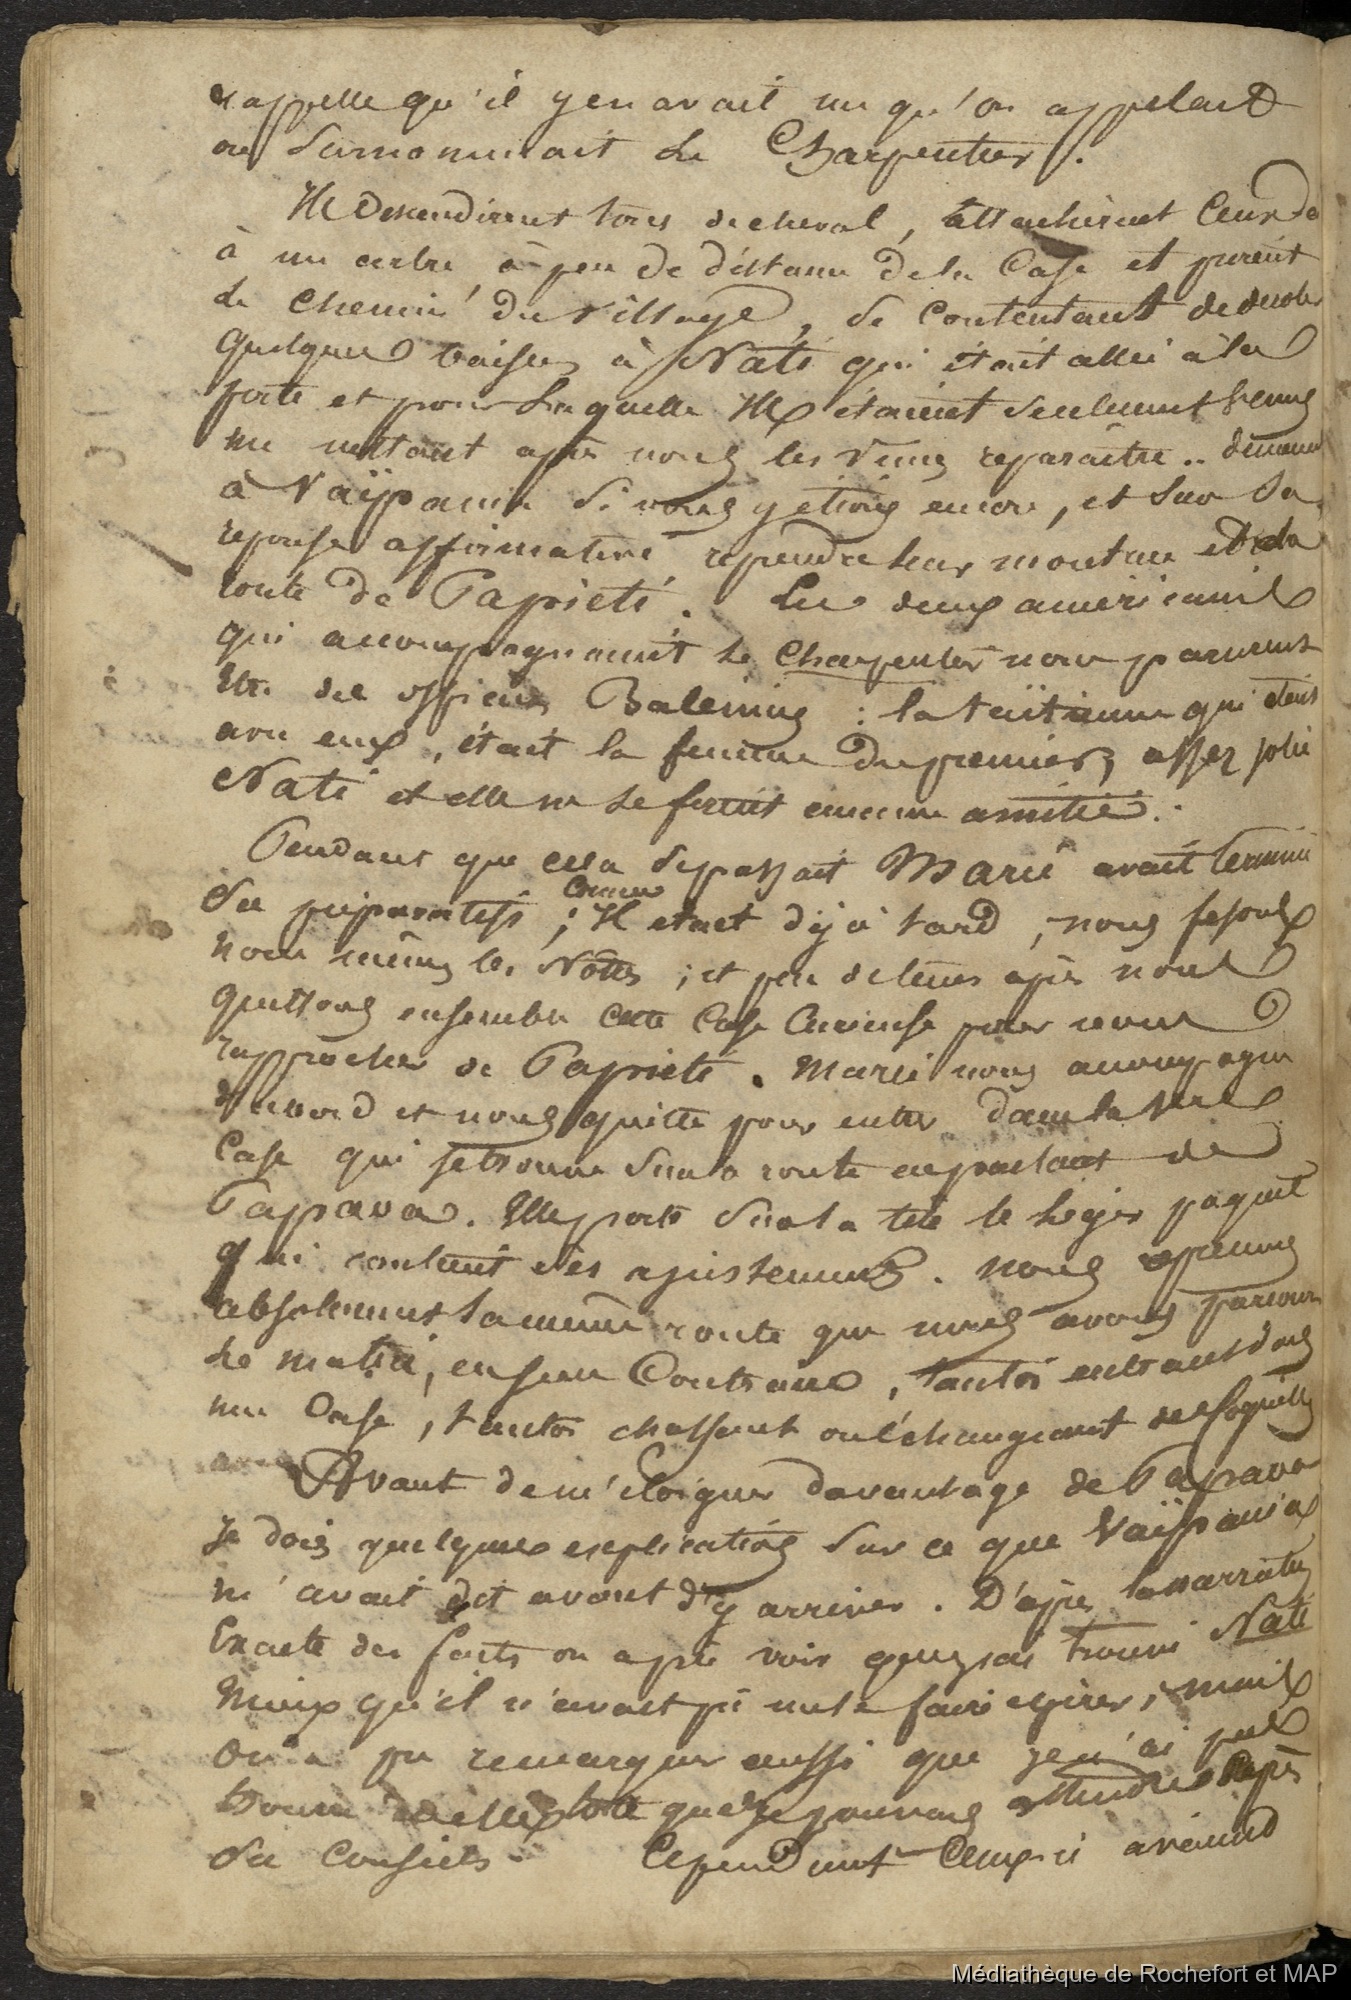 rappelle qu'il y en avait un qu'on appelait
ou surnommait le Charpentier.
Ils descendirent tous de cheval, attachèrent ceux de
à un arbre à peu de distance de la Case et prirent
le chemin du village, se contentant de dérober
quelques baisers à Nati qui était allée à la
porte et pour laquelle ils étaient seulement venus
un instant après nous les vîmes reparaître.. demander
à Vaïpania si nous y étions encore, et sur sa
réponse affirmative reprendre leur monture et la
route de Papriété. Les deux américains
qui accompagnaient le Charpentier nous parurent
être des officiers Baleiniers : la taïtienne qui était
avec eux, était la femme du premier, assez jolie
Nati et elle ne se firent aucune amitié.
Pendant que cela se passait Marie avait terminé
ses préparatifs ; comme il était déjà tard, nous fesons
nous mêmes les nôtres ; et peu de tems après nous
quittons ensemble cette Case curieuse pour nous
rapprocher de Papriété. Marie nous accompagne
d'abord et nous quitte pour entrer dans la
Case qui se trouve sur la route en partant de
Papava. Elle porte sur la tête le léger paquet
qui contient ses ajustements. nous reprenons
absolument la même route que nous avons parcourue
le matin, en sens Contraire, tantôt entrant dans
une Case, tantôt chassant ou échangeant des coquilles
Avant de m'éloigner davantage de Papava
je dois quelques explications sur ce que Vaïpania
m'avait dit avant d'y arriver. D'après la narration
Exacte des faits on a pu voir que j'ai trouvé Nati
mieux qu'il n'avait pu me le faire espérer, mais
on a pu remarquer aussi que je n'ai pas
trouvé elle telle que je pouvais attendre d'après
ses conseils. Cependant Ceux-ci avaient
Médiathèque de Rochefort et MAP